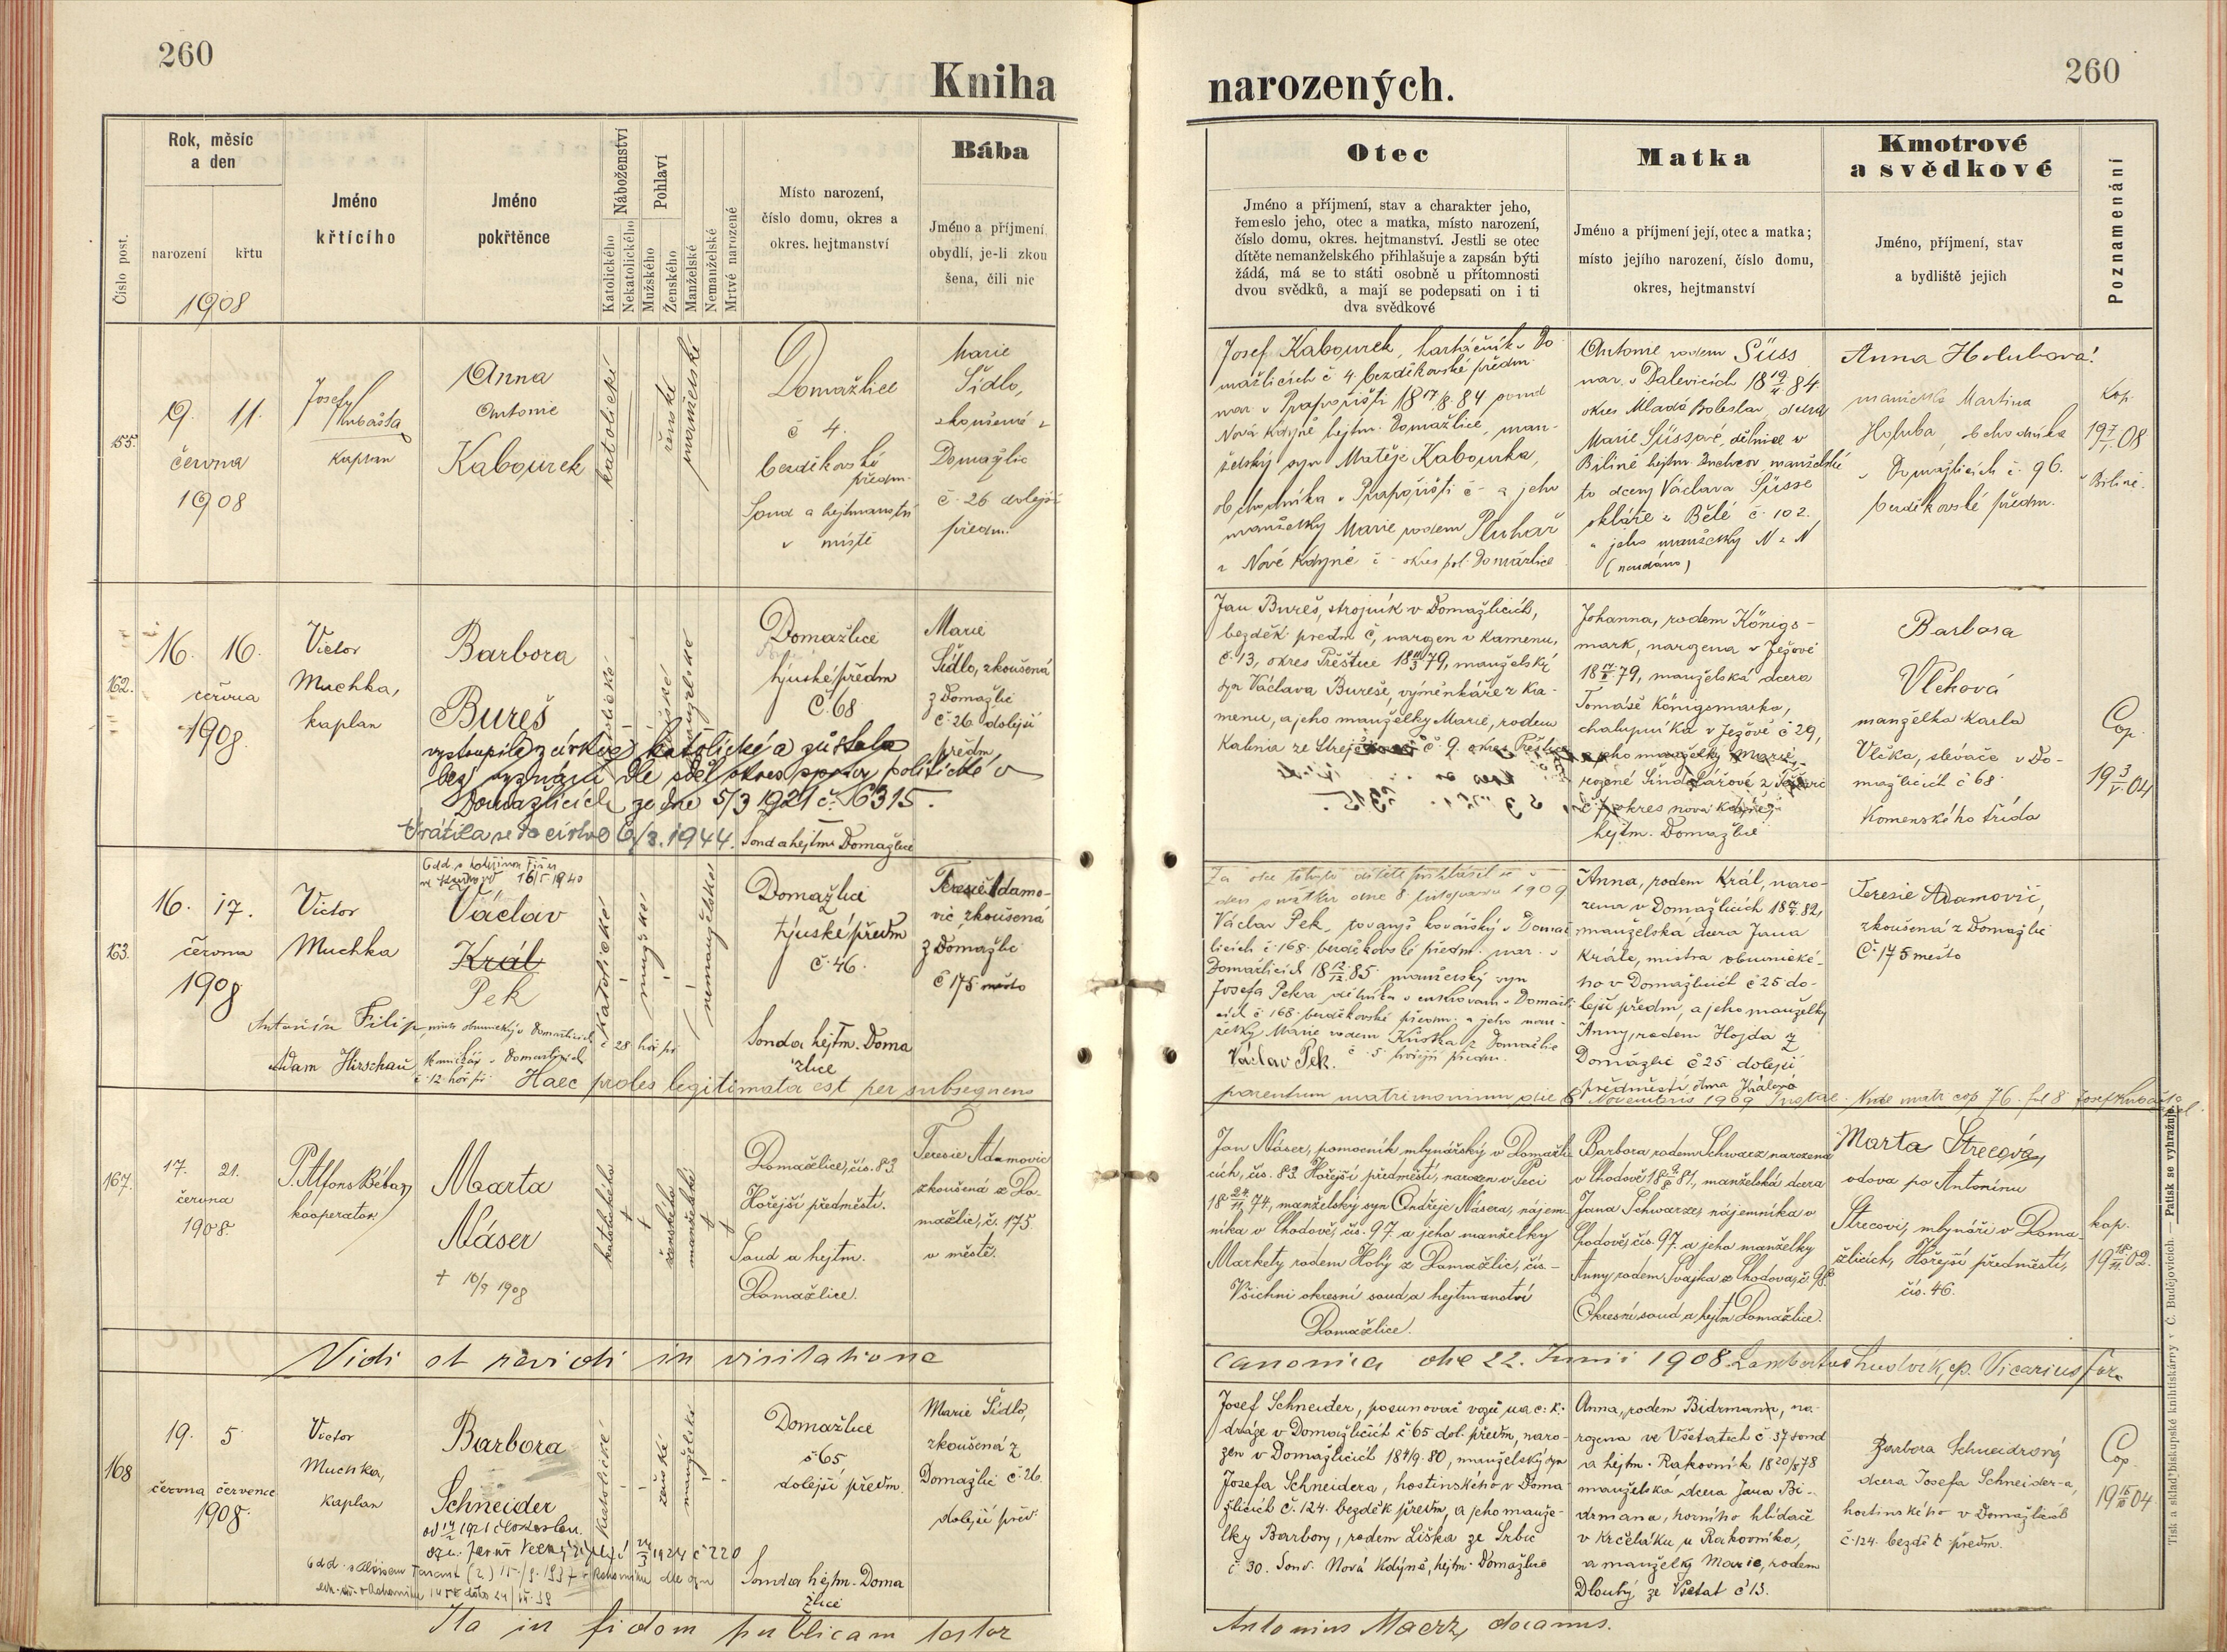 260
Kniha
narozených.
260
Číslo post.
Rok, měsíc
a den
narození
křtu
1908
Jméno
křtícího
Jméno
pokřtěnce
Náboženství
Katolického
Nekatolického
Pohlaví
Mužského
Ženského
Manželské
Nemanželské
Mrtvě narozené
Místo narození,
číslo domu, okres a
okres. hejtmanství
Bába
Jméno a příjmení
obydlí, je-li zkou
šena, čili nic
Otec
Jméno a příjmení, stav a charakter jeho,
řemeslo jeho, otec a matka, místo narození,
číslo domu, okres. hejtmanství. Jestli se otec
dítěte nemanželského přihlašuje a zapsán býti
žádá, má se to státi osobně u přítomnosti
dvou svědků, a mají se podepsati on i ti
dva svědkové
Matka
Jméno a příjmení její, otec a matka;
místo jejího narození, číslo domu,
okres, hejtmanství
Kmotrové
a svědkové
Jméno, příjmení, stav
a bydliště jejich
Poznamenání
155.
9. 11.
června
1908
Josef
Kubašta
kaplan
Anna
Antonie
Kabourek
katolické
ženské
manželské
Domažlice
č 4.
bezděkovské
předm.
Soud a hejtmanství
v místě
Marie
Šídlo,
zkoušená z
Domažlic
č. 26 dolejší
předm.
Josef Kabourek, v Do
mažlicích č 4 bezděkovské předm.
nar. v Prapořišti 18 7/8 84 soud
Nová Kdyně hejtm. Domažlice, man-
želský syn Matěje Kabourka,
obchodníka v Prapořišti č - a jeho
manželky Marie rodem Pluhař
z Nové Kdyně č - okres pol. Domažlice
Antonie rodem Süss
nar. v Dalevicích 18 19/11 84
okres Mladá Boleslav, dcera
Marie Süssové, dělnice v
Bílině hejtm. Duchcov, manželské
to dcery Václava Süsse
skláře z Bělé č. 102.
a jeho manželky N. N
(neudáno)
Anna Holubová
manželka Martina
Holuba, obchodníka
v Domažlicích č. 96.
bezděkovské předm.
kop.
19 7/1 08
v Bílině.
162.
16. 16.
června
1908.
Victor
Muchka,
kaplan
Barbora
Bureš
vystoupila z církve katolické a zůstala
bez vyznání dle sděl. okres. správy politické v
Domažlicích ze dne 5/3 1921 č. 16315.
Vrátila se do církve 6/3. 1944.
Domažlice
týnské předm
č. 68
Soud a hejtm. Domažlice
Marie
Šídlo, zkoušená
z Domažlic
č. 26 dolejší
předm
Jan Bureš, strojník v Domažlicích,
bezděk. předm č, narozen v Kamenu,
č. 13, okres Přeštice 18 11/3 79, manželský
syn Václava Bureše, výměnkáře z Ka-
menu, a jeho manželky Marie, rodem
Kalina ze č 9. okres Přeštice
Johanna, rodem Königs-
mark, narozena v Ježově
79, manželská dcera
Tomáše Königsmarka,
chalupníka v Ježově č 29,
a jeho manželky Marie,
rozené Šindlářové z
č 7 okres nová Kdyně
hejtm. Domažlice
Barbora
Vlčková
manželka Karla
Vlčka, slévače v Do-
mažlicích č 68
Komenského třída
Cop.
19 3/5 04
163.
16. 17.
června
1908
Victor
Muchka
16/5 1940
Václav
Král
Pek
katolické
mužské
nemanželské
Domažlice
týnské předm
č. 46.
Soud a hejtm. Doma
žlice
Teresie Adamo-
vič zkoušená
z Domažlic
č 175 město
Antonín Filip, mistr obuvnický v Domažlicích č 28 hoř př
Adam Hirschau v Domažlicích
č. 12. hoř. př.
Za otce tohoto dítěte prohlásil se v
den sňatku dne 8. listopadu 1909
Václav Pek, tovaryš kovářský v Domaž
licích č. 168. bezděkovské předm. nar. v
Domažlicích 18 12/12 85 manželský syn
Josefa Peka dělníka v cukrovaru v Domažli
cích č 168 bezděkovské předm. a jeho man-
želky Marie rodem z Domažlic
č. 5 hořejší předm.
Václav Pek.
Anna, rodem Král, naro-
zena v Domažlicích 82,
manželská dcera Jana
Krále, mistra obuvnické-
ho v Domažlicích č 25 do-
lejší předm, a jeho manželky
Anny, rodem Hojda z
Domažlic č 25 dolejší
předměstí Anna Králová
Teresie Adamovič,
zkoušená z Domažlic
č. 175 město
Haec proles legitimata est per subsequens
parentum matrimonium die 8 Novembris 1909 Vide matr cop 76. fol 8 Josef Kubašta
167.
17. 21.
června
1908.
P. Alfons Béban
kooperator
Marta
Náser
† 10/9 1908
katolického
ženského
manželské
Domažlice, čís. 83
Hořejší předměstí.
Soud a hejtm.
Domažlice.
Teresie Adamovic
zkoušená z Do-
mažlic, č. 175.
v městě.
Jan Náser, pomocník mlynářský v Domažli
cích, čís. 83 Hořejší předměstí, narozen v Peci
18 24/11 74, manželský syn Ondřeje Násera, nájem
níka v Chodově, čís. 97. a jeho manželky
Markety rodem Holý z Domažlic, čís -
Všichni okresní soud a hejtmanství
Domažlice.
Barbora rodem Schwarz, narozena
v Chodově 18 9/8 81, manželská dcera
Jana Schwarze, nájemníka v
Chodově, čís. 97. a jeho manželky
Anny, rodem Svajka z Chodova, č. 98
Okresní soud a hejtm Domažlice.
Marta Strecová,
vdova po Antonínu
Strecovi, mlynáři v Doma
žlicích, Hořejší předměstí,
čís. 46.
kop.
19 18/11 02.
Vidi et revidi in visitatione
canonica die 22. Junii 1908. Lambertus Ludvík, Vicarius for.
168
19. 5
června července
1908.
Victor
Muchka,
kaplan
Barbora
Schneider
1921 českoslov.
1924 č 220
katolické
ženské
manželské
Domažlice
č. 65
dolejší předm.
Soud a hejtm. Doma
žlice
Marie Šídlo,
zkoušená z
Domažlic č. 26.
dolejší před.
Josef Schneider, posunovač vozů na c. k.
dráze v Domažlicích č. 65 dol. předm, naro-
zen v Domažlicích 18 4/9. 80, manželský syn
Josefa Schneidera, hostinského v Doma
žlicích č. 124. bezděk předm, a jeho manže-
lky Barbory, rodem Liška ze Srbic
č. 30. Soud. Nová Kdyně, hejtm. Domažlice
Anna, rodem Bidrman, na-
rozena ve Všetatech č. 37 soud
a hejtm. Rakovník 18 20/8 78
manželská dcera Jana Bi-
drmana, horního hlídače
v Krčeláku u Rakovníka,
a manželky Marie, rodem
Dlouhý ze Všetat č 13.
Barbora Schneidrová
dcera Josefa Schneider-a,
hostinského v Domažlicích
č. 124. bezděk předm.
Cop.
19 15/10 04
Ita in fidem publicam testor
Antonius Maerz, decanus.
Tisk a sklad biskupské knihtiskárny v Č. Budějovicích. — Patisk se vyhražuje.